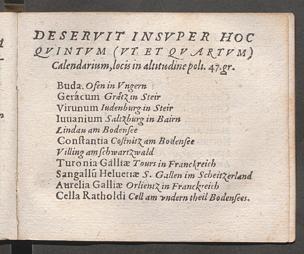 DESERVIT INSVPER HOC
QVINTVM (VT ET QVARTVM)
Calendarium, locis in altitudine poli. 47. gr.
Buda. Ofen in Vngern
Geracum Grätz in Steir
Virunum Iudenburg in Steir
Iuuanium Saltzburg in Bairn
Lindau am Bodensee
Constantia Costnitz am Bodensee
Villing am schwartzwald
Turonia Galliæ Tours in Franckreich
Sangallũ Heluetiæ S. Gallen im Scheitzerland
Aurelia Galliæ Orlientz in Franckreich
Cella Ratholdi Cell am vndern theil Bodensees.